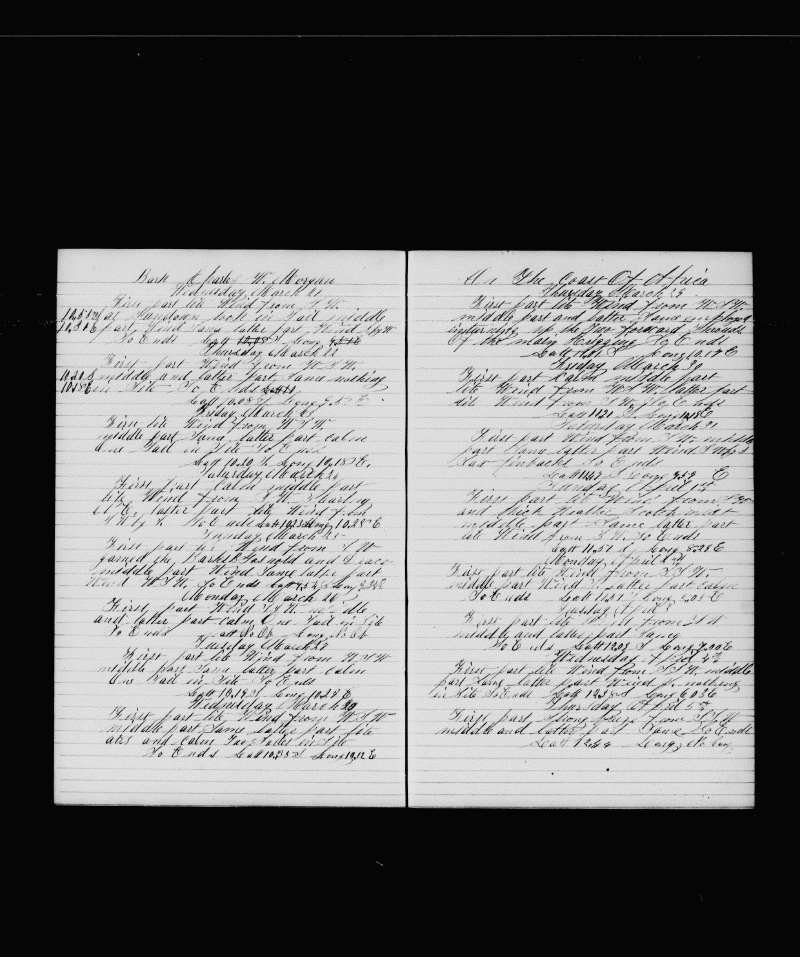 Bark Charles W. Morgan
Wednesday March 21
First part lite Wind from S W
at Sundown took in Sail middle
part Wind Same latter part Wind S by W
So Ends Latt 10,08 S Long
Thursday March 22
First part Wind from W S W
middle and latter Part Same nothing
in Site So Ends
Latt 10.08 S Long 9.57 E
Friday March 23
First lite Wind from W S W
middle part Same latter part calm
One Sail in Site So Ends
Latt 10.20 S Long 10,18 E.
Saturday March 24
First part Calm middle part
lite Wind from S W
latter part lite Wind from
So Ends Latt 10.13 Long 10.28 E
Sunday March 25
First part lite Wind from S W
gamed the Barks
middle part Wind Same latter part
Wind W S W. So Ends Latt
Monday March 26
First part Wind S by W middle
and latter part calm One Sail in Site
So Ends Latt No Ob Long No Ob
Tuesday March 27
First part lite Wind from W S W
middle part Same latter part calm
One Sail in Site So Ends
Latt 10,19 S Long 10.29 E
Wednesday March
First part lite Wind from W S W
middle part Same latter part lite
airs and calm Two Sailes in Site
So Ends Latt 10,35 S Long 10,12 E
On The Coast Of Africa
Thursday March 29
First part lite Wind from W S W
middle part and latter Same employed
up the two forward Shrouds
Of the main Rigging So Ends
Latt S Long 10.17 E
Friday March 30
First part Calm middle part
lite Wind from W S W. latter part
lite Wind from S W So Ends
Latt 11.21 S Long
Saturday March 31
First part Wind from S W middle
part Same latter part Wind
Saw finbacks So Ends
Latt 11.47 S Long 9.59 E
Sunday April 1st
First part lite Wind from
and thick Weather
middle part Same latter part
lite Wind from S W So Ends
Latt 11.51 S Long 8.28 E
Monday April 2nd
First part lite Wind from S S W.
middle part Wind S latter part calm
So Ends Latt 11.57 S Long
Tuesday April 3
First part lite Wind from S W
middle and latter part Same
So Ends Latt 12.05 S Long 7.00 E
Wednesday April 4th
First part lite Wind from S S W. middle
part Same latter part Wind S. nothing
in Site So Ends Latt 12.38 S Long 6.03 E
Thursday April 5th
First part Strong from S S W
middle and latter part Same So Ends
Latt 12.44 Long No